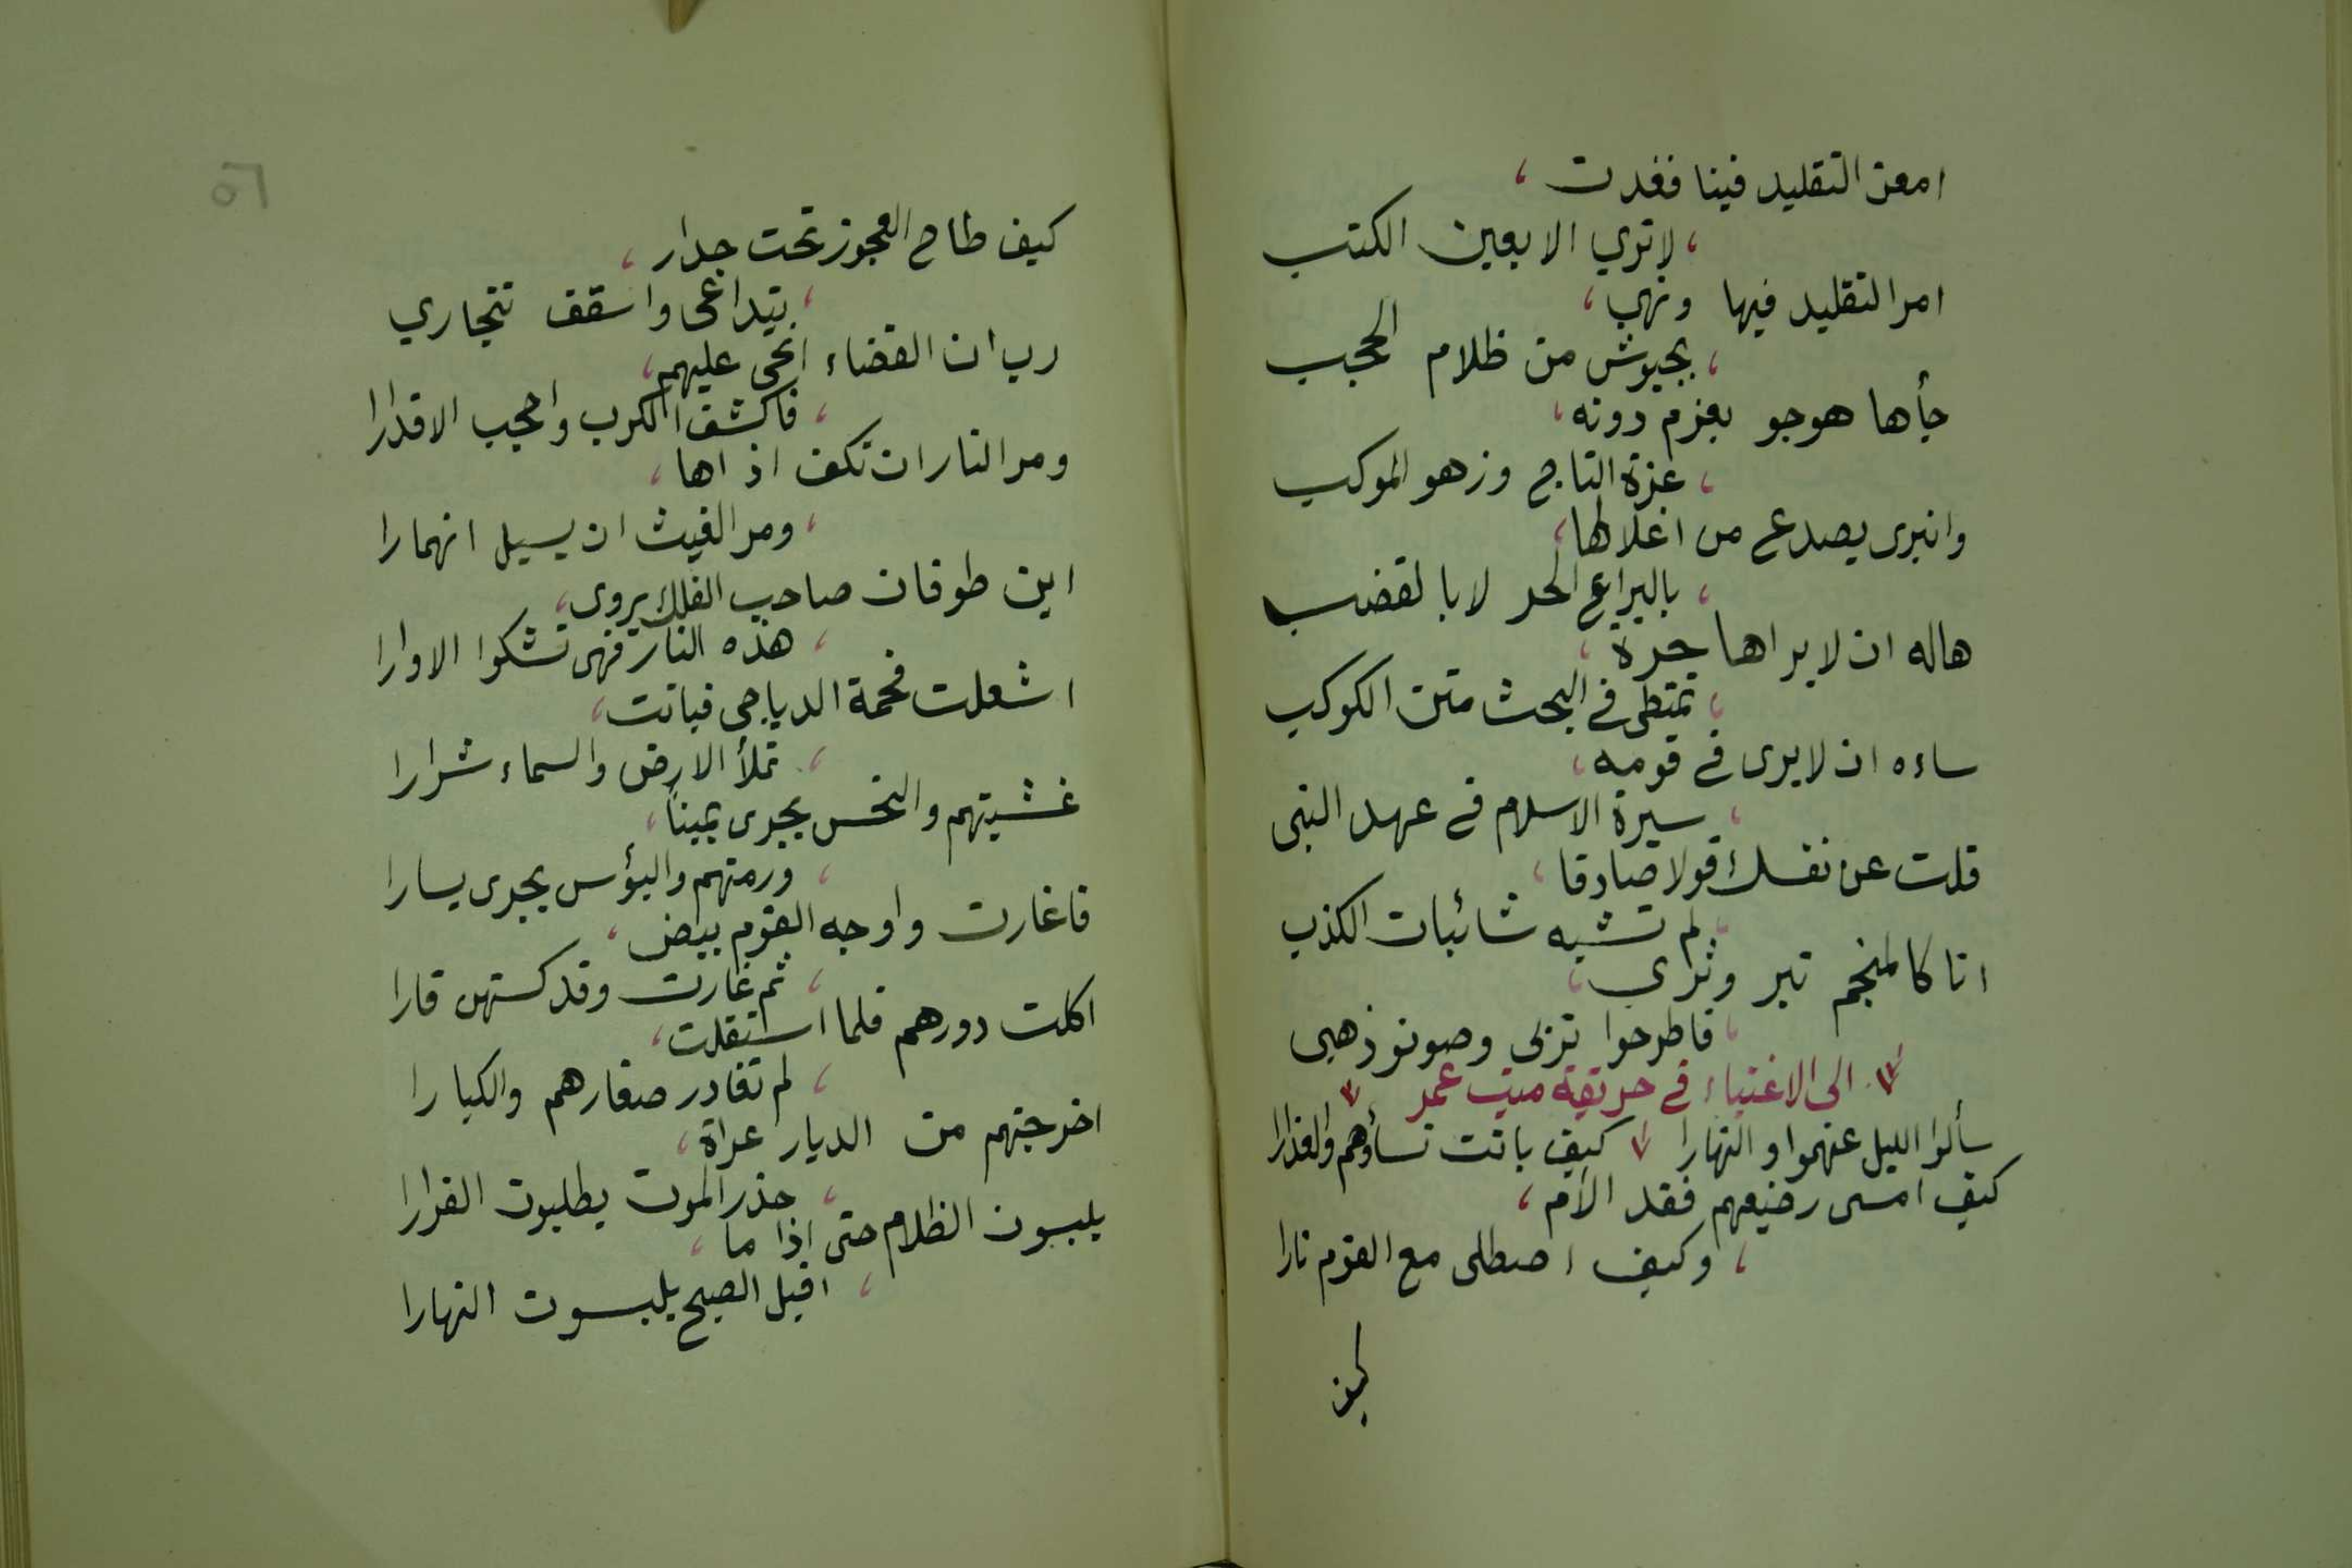 امعن التقليد فينا فغدت ،
، لا تري الا بعين الكتب
امر التقليد فيها ونهي ،
، بجيوش من ظلام الحجب
جأها هوجو بعزم دونه ،
، عزة التاج وزهو الموكب
وانبرى يصدع من اغلالها ،
، باليراع الحر لا بالقضب
هاله ان لا يراها حرة ،
، تمتطى فى البحث متن الكوكب
ساءه ان لا يرى فى قومه ،
، سيرة الاسلام فى عهد النبى
قلت عن نفسك قولا صادقا ،
، لم تشبه شائبات الكذب
انا كالمنجم تبر وثرى ،
، فاطرحوا تربى وصونو ذهبى
الى الاغنياء فى حريقة ميت عمر
سألوا الليل عنهموا والنهارا كيف باتت نساؤهم والعذارا
كيف امسى رضيعهم فقد الام ،
، وكيف اصطلى مع القوم نارا
كيف
٥٦
كيف طاح العجوز تحت جدار ،
، يتداعى واسقف تتجاري
رب ان القضاء انحى عليهم ،
، فاكشف الكرب واحجب الاقدارا
ومر النار ان تكف اذاها ،
، ومر الغيث ان يسيل انهمارا
اين طوفان صاحب الفلك يروى ،
، هذه النار فهى تشكوا الاوارا
اشعلت فحمة الدياجى فباتت ،
، تملأ الارض والسماء شرارا
غشيتهم والنحس يجرى يمينا ،
، ورمتهم والبؤس يجرى يسارا
فاغارت واوجه القوم بيض ،
، ثم غارت وقد كستهن قارا
اكلت دورهم فلما استقلت ،
، لم تغادر صغارهم والكبارا
اخرجتهم من الديار عراة ،
، حذر الموت يطلبون الفرارا
يلبسون الظلام حتى اذا ما ،
، اقبل الصبح يلبسون النهارا